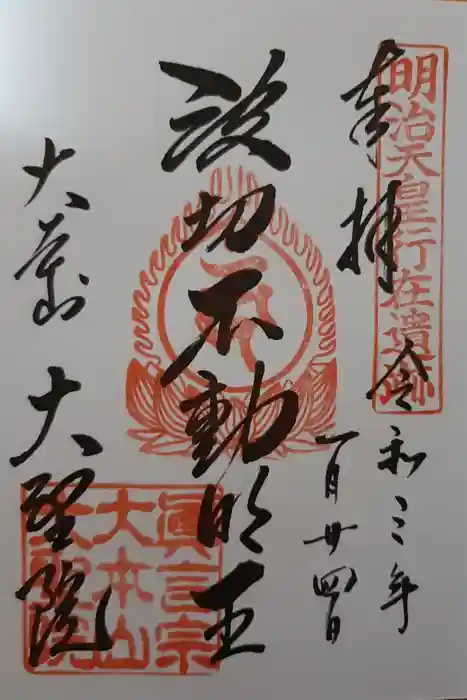 明治天皇行在遺跡
奉拝
令和三年
一月廿四日
波切不動明王
大本山
大聖院
眞言宗
大本山
大聖院